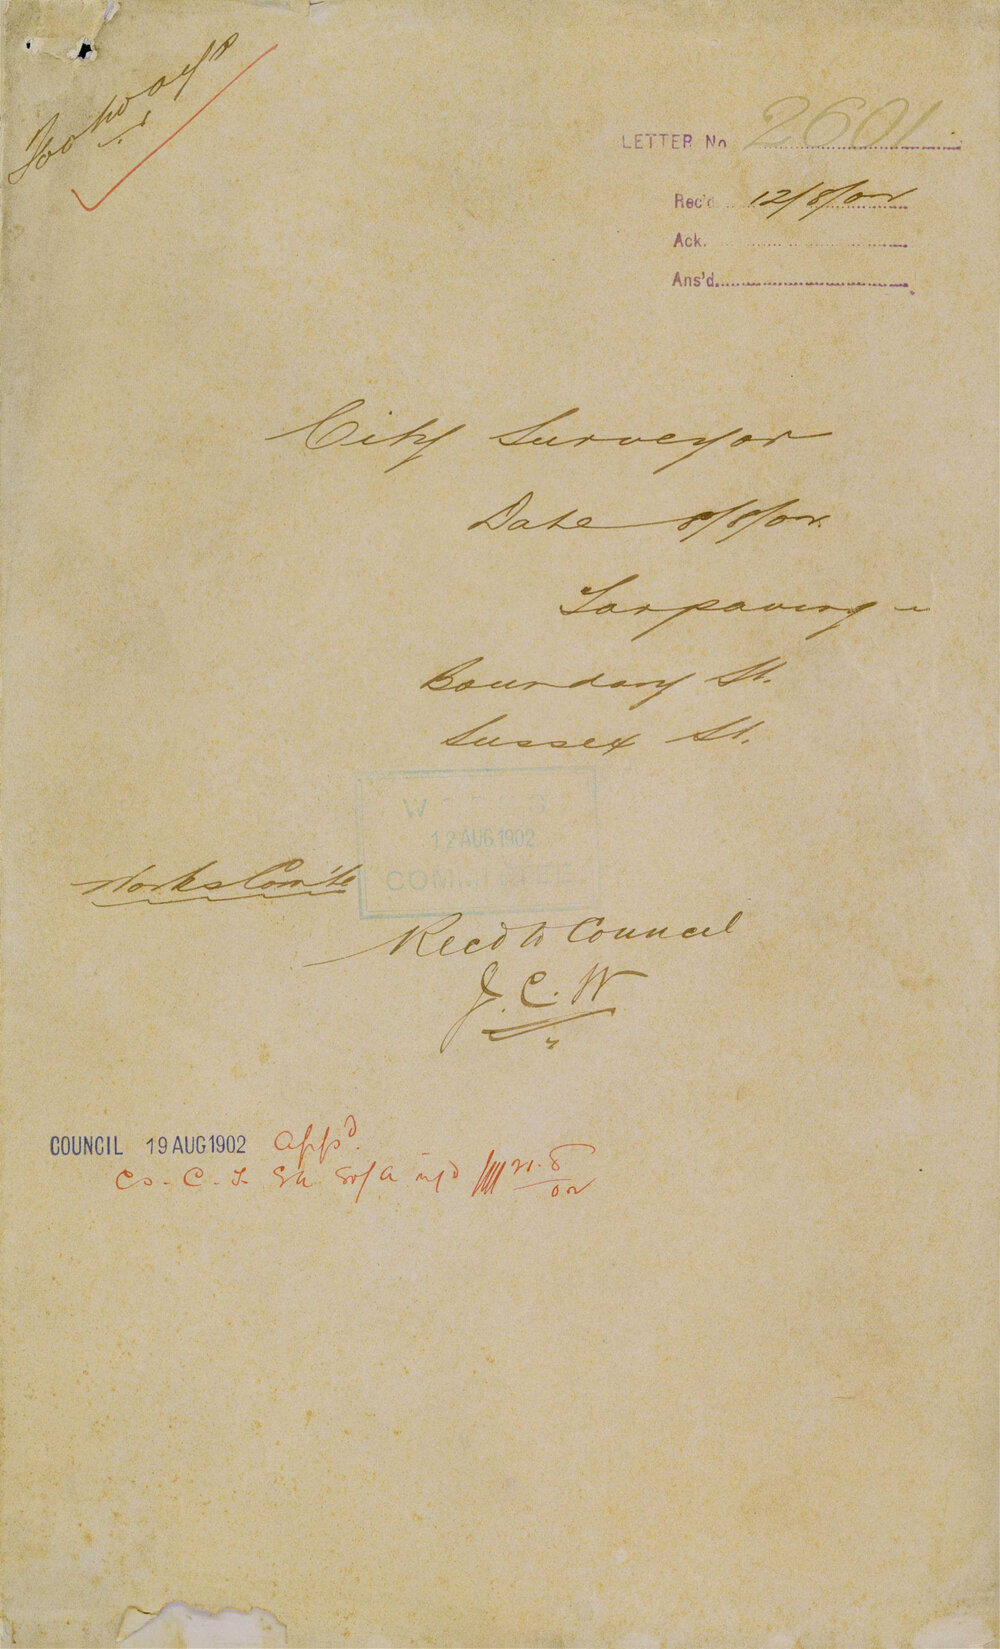 Footways
LETTER No 2601
Rec'd 12/8/02
Ack.
Ans'd
City Surveyor
Date 8/8/02.
Tarpaving -
Boundary St.
Sussex St.
WORKS
12 AUG. 1902
COMMITTEE
Works Com'te
Rec'd to Council
J. C. W
COUNCIL 19 AUG 1902 Appd.
Cs. C. T.
21.8
02